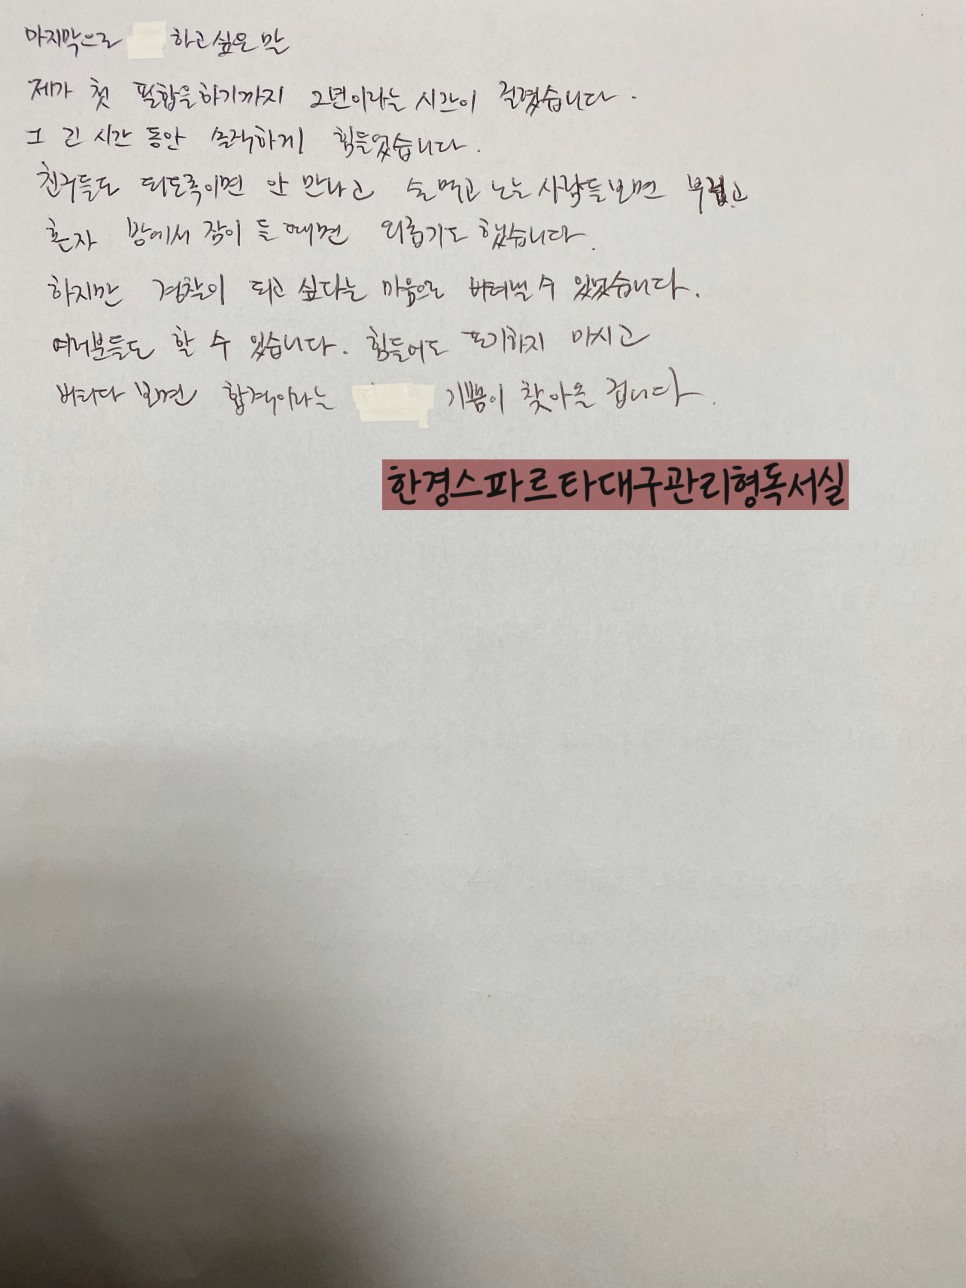 마지막으로 하고싶은 말
제가 첫 필합을하기까지 2년이라는 시간이 걸렸습니다.
그 긴 시간 동안 솔직하게 힘들었습니다.
친구들도 되도록이면 안 만나고 술 먹고 노는 사람들 보면 부럽고
혼자 방에서 잠이 들 때면 외롭기도 했습니다.
하지만 경찰이 되고 싶다는 마음으로 버텨낼 수 있었습니다.
여러분들도 할 수 있습니다. 힘들어도 포기하지 마시고
버티다 보면 합격이라는 기쁨이 찾아올 겁니다.
한경스파르타대구관리형독서실